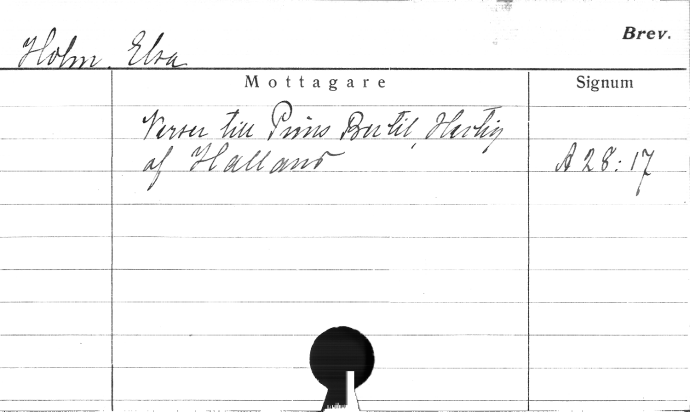 Brev.
Holm, Elsa
Mottagare
Signum
Verser till Prins Bertil, Hertig
af Halland
A 28:17